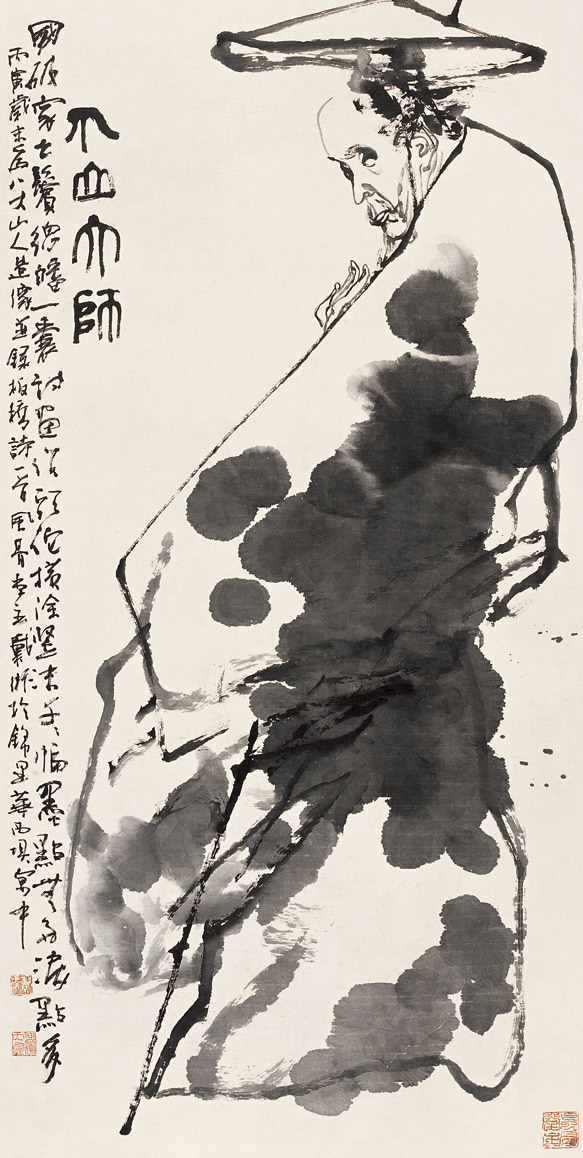 个山大師
國破家亡鬢總皤一囊詩畫作頭陀橫塗豎抹千千幅墨點無多淚點多
丙寅歲末為八大山人造像並錄板橋詩一首風骨堂主戴衛於錦里華西壩寓中